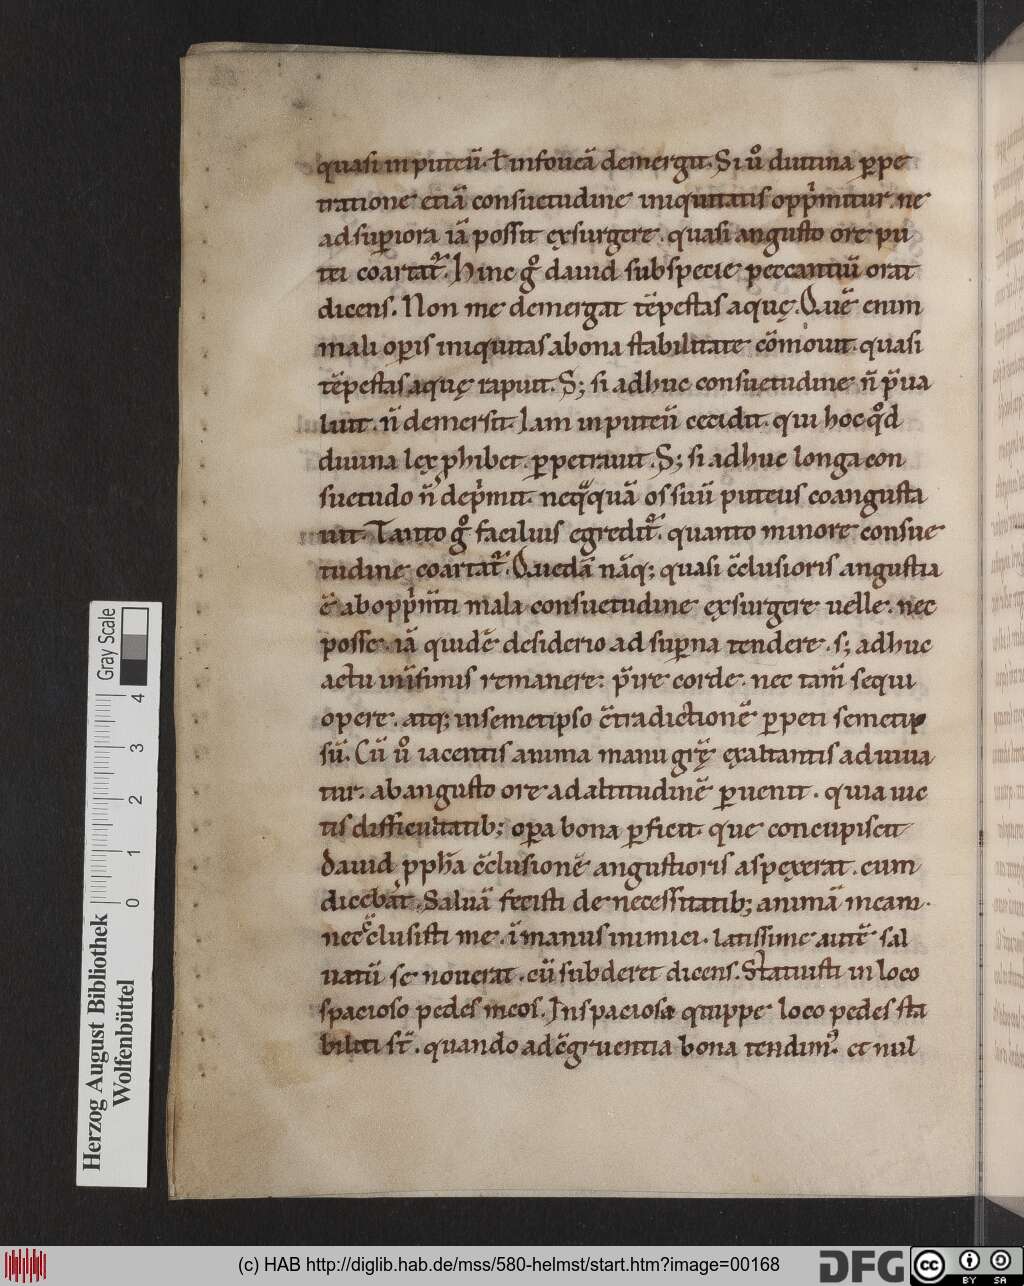 quasi in puteū. ł in foueā demergit. Si ů diutina ꝑpe
tratione etiā consuetudine iniquitatis opp̍mitur. ne
ad suꝑiora iā possit exsurgere. quasi angusto ore pu
tei coartat᷑. Hinc g̊ dauid sub specie peccantiū orat
dicens. Non me demergat tēpestas aquę. Quē enim
mali oꝑis iniquitas a bona stabilitate cōmouit. quasi
tēpestas aquę rapuit. S; si adhuc consuetudine n̄ p̄ua
luit. n̄ demersit. Iam in puteū cecidit. qui hoc qd̊
diuina lex ꝓhibet. ꝑpetrauit. S; si adhuc longa con
suetudo n̄ dep̍mit. neqͣquā os suū puteus coangusta
uit. Tanto g̊ facilius egredit᷑. quanto minore consue
tudine coartat᷑. Quedā nāq; quasi c̄clusioris angustia
ē ab opp̍m̄ti mala consuetudine exsurgere uelle. nec
posse. iā quidē desiderio ad suꝑna tendere. s; adhuc
actu in īfimis remanere. p̄ire corde. nec tam̄ sequi
opere. atq; in semetipso c̄tradictionē ꝑpeti semetip
sū. Cū ů iacentis anima manu grę̄ exaltantis adiuua
tur. ab angusto ore ad altitudinē ꝑuenit. quia uic
tis difficultatib; oꝑa bona ꝑficit que concupiscit
Dauid ꝓph̄a c̄clusionē angustioris aspexerat. cum
dicebat. Saluā fecisti de necessitatib; animā meam.
nec c̄clusisti me. ī manus inimici. latissime autē sal
uatū se nouerat. cū subderet dicens. Statuisti in loco
spacioso pedes meos. In spacioso quippe loco pedes sta
biliti sт̄. quando ad c̄gruentia bona tendimꝰ. et nul
Gray Scale
4
3
2
1
0
Herzog August Bibliothek
Wolfenbüttel
(c) HAB http://diglib.hab.de/mss/580-helmst/start.htm?image=00168
DFG
cc
BY SA